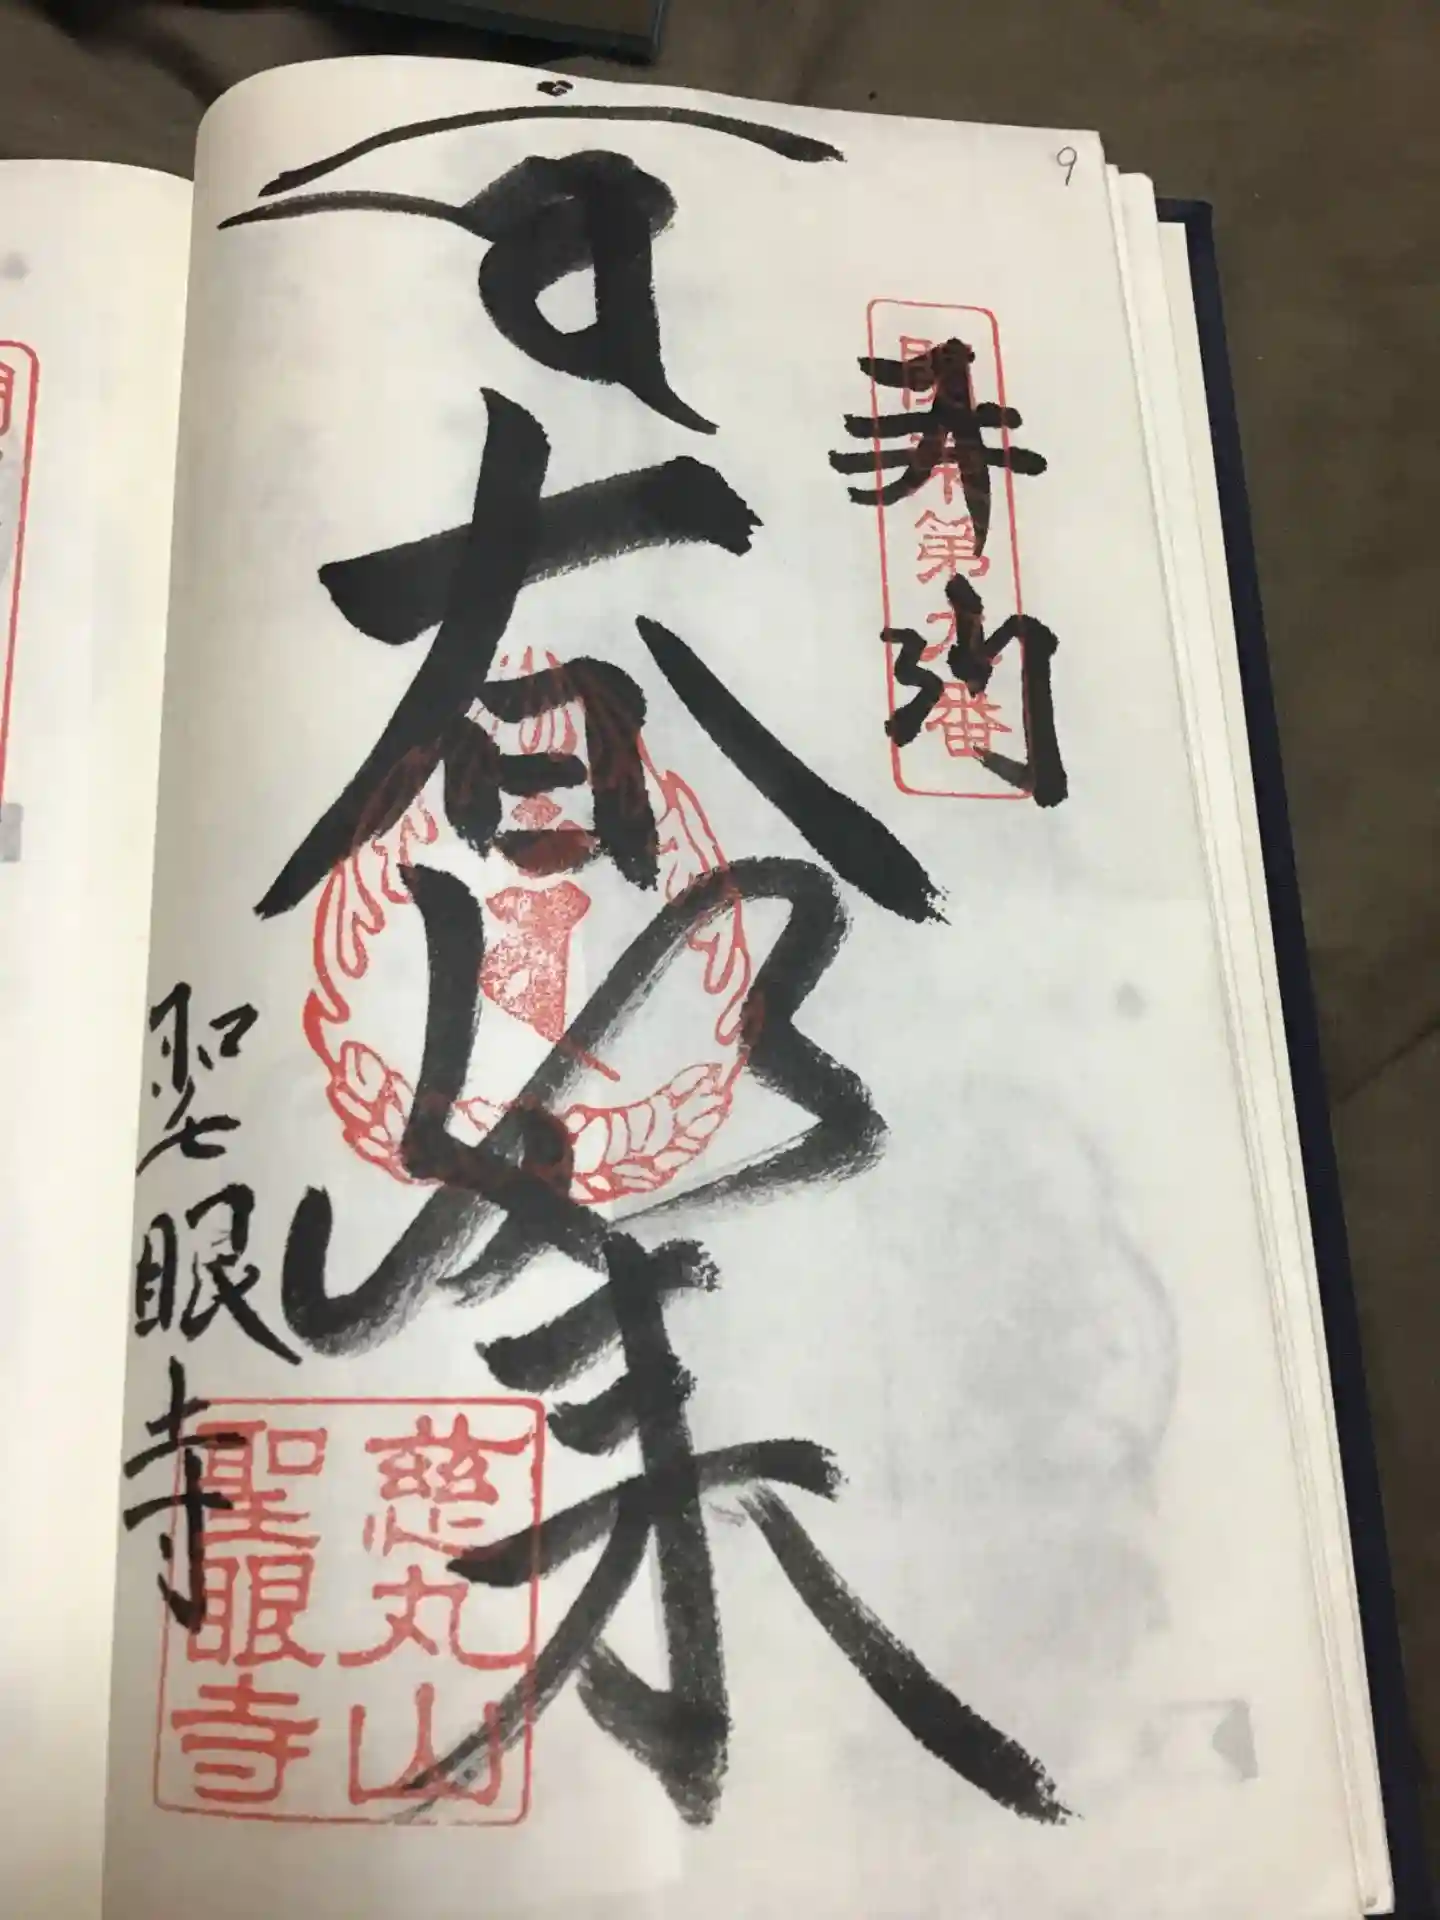 9
関東第九番
奉拝
大日如来
聖眼寺
慈丸山
聖眼寺